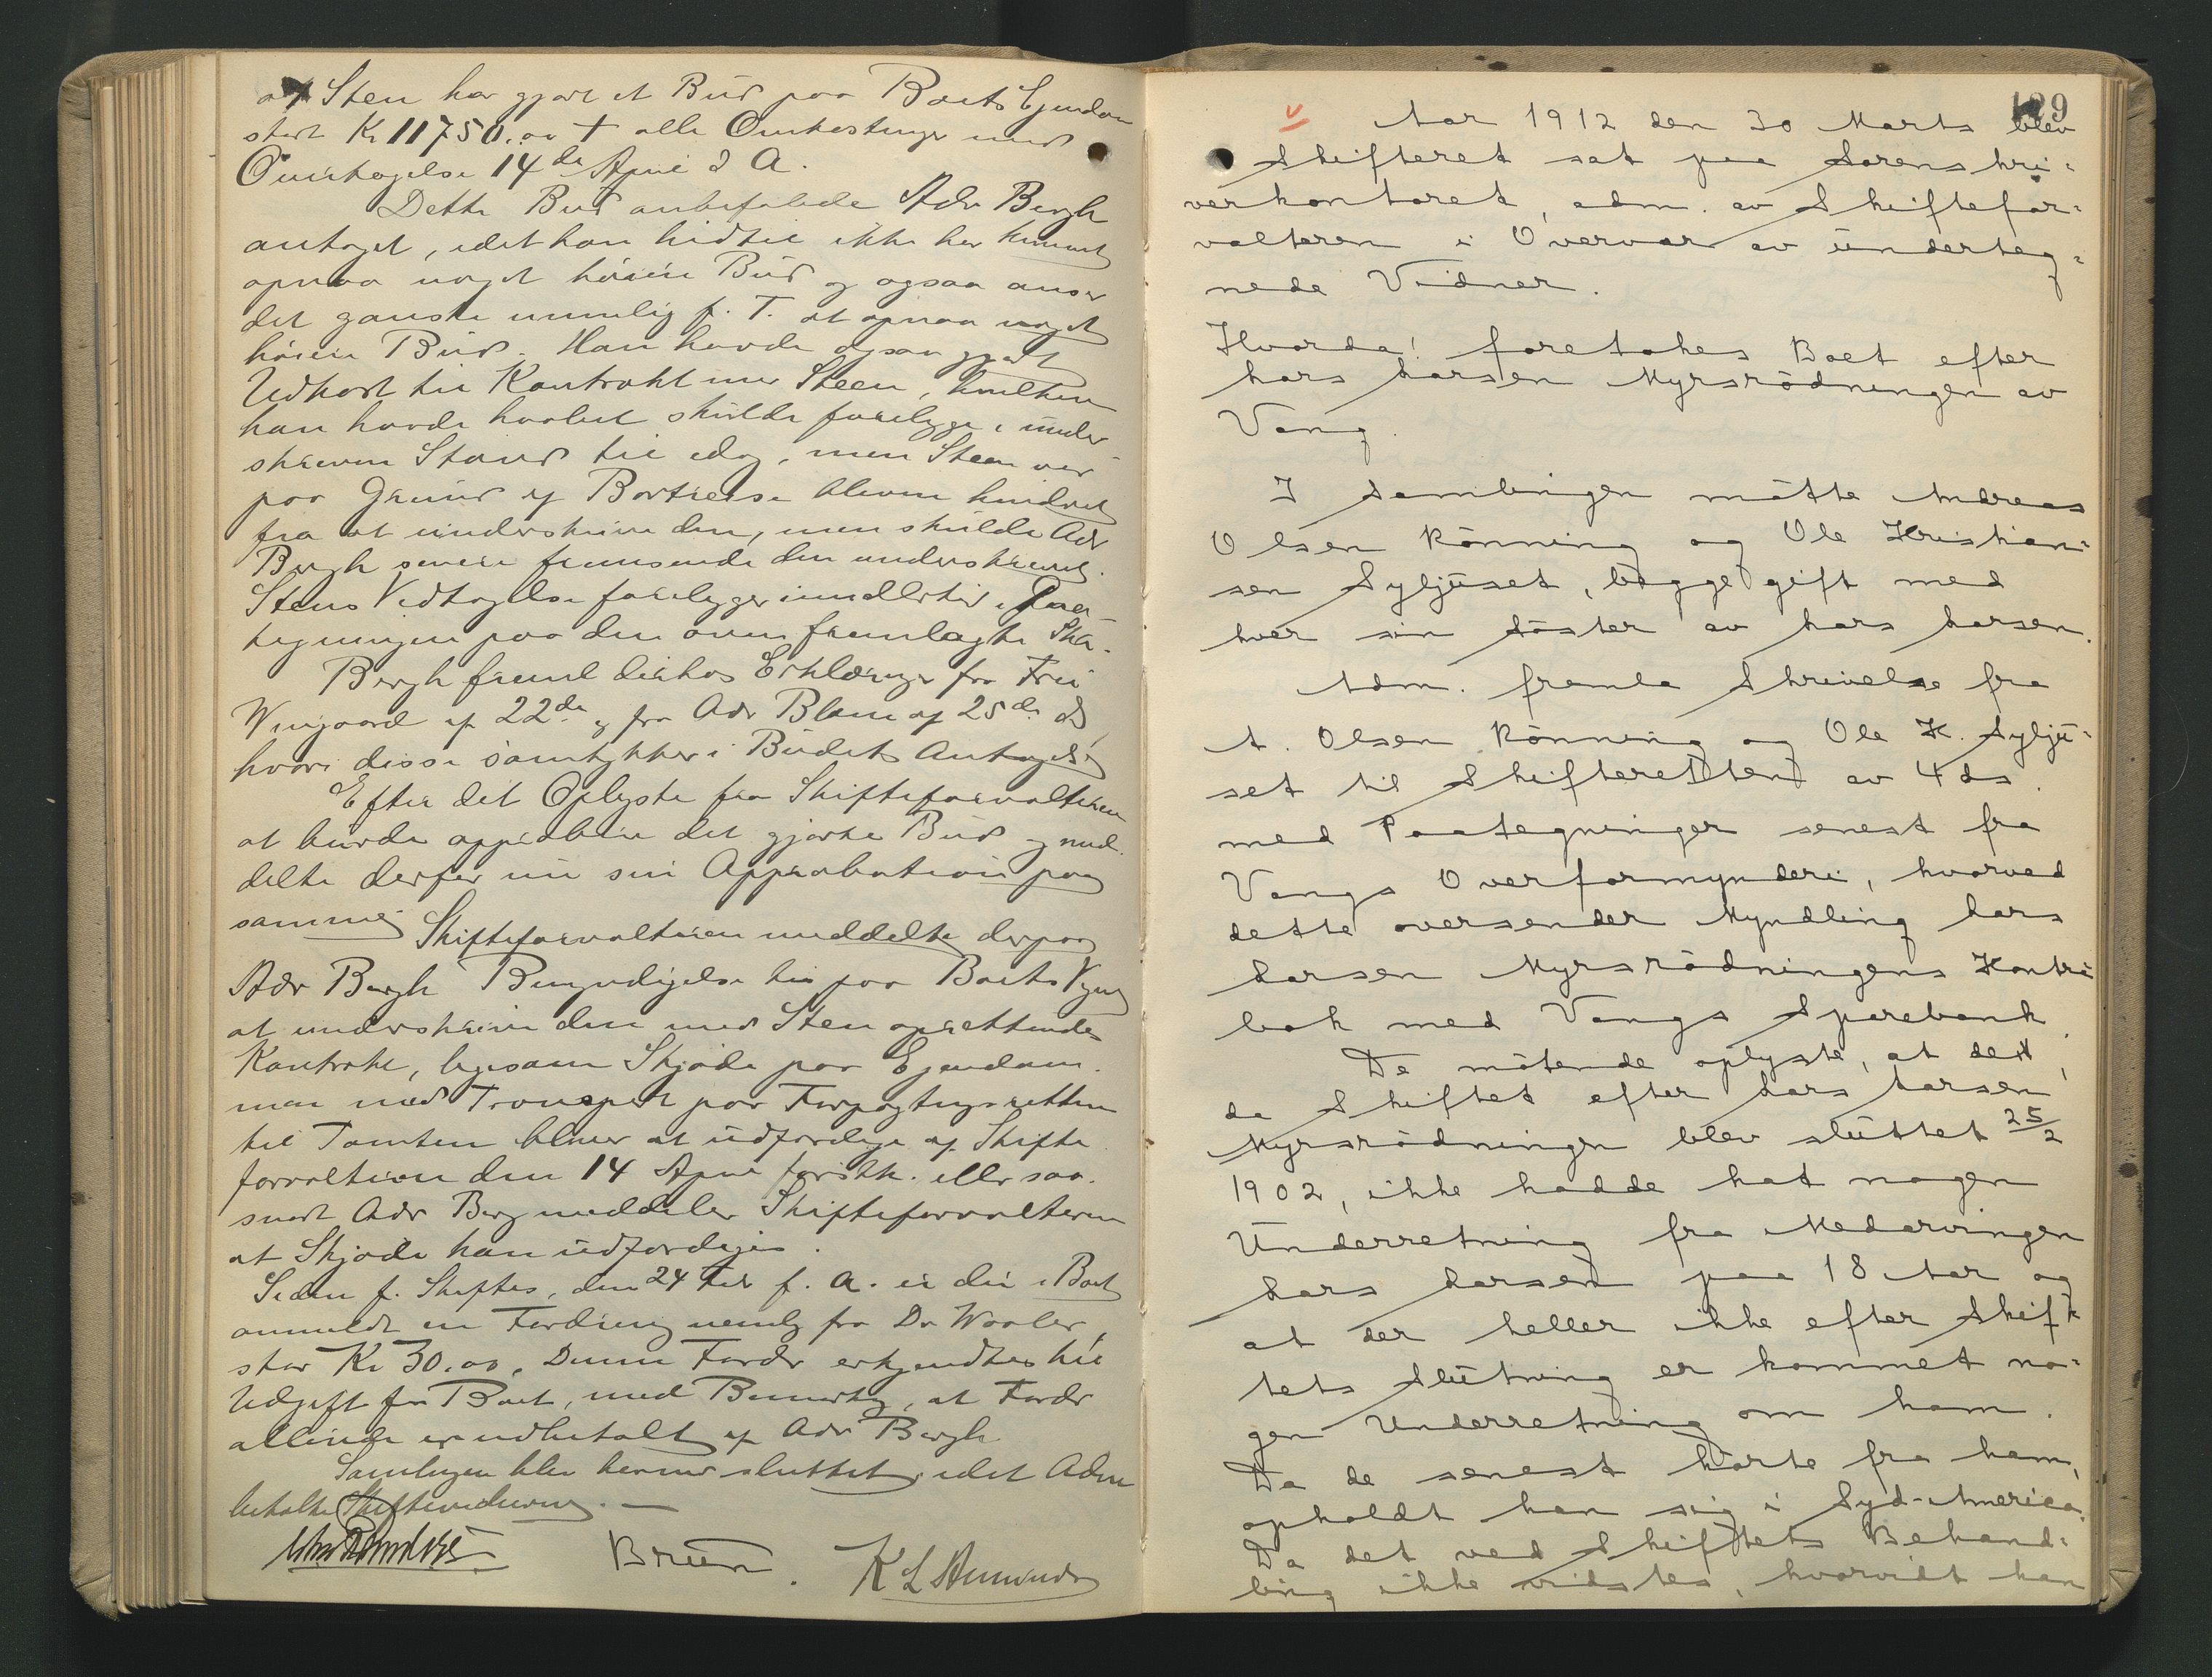 af Sten har gjort et Bud paa Boets Ejendom
stort Kr 11750.00 + alle Omkostninger med
Overtagelse 14de April d A.
Dette Bud anbefalede Adv Bergh
antaget, idet han hidtil ikke har kunnet
opnaa noget høiere Bud og ogsaa anser
det ganske umulig p. T. at opnaa noget
høiere Bud. Han havde ogsaa gjort
Udkast til Kontrakt med Steen, hvilken
han havde haabet skulde foreligge i under-
skreven Stand til idag, men Steen var
paa Grund af Bortreise bleven hindret
fra at underskrive den, men skulde Adv
Bergh senere fremsende den underskrevet.
Stens Vedtagelse foreligger imidlertid i Paa-
tegningen paa den oven fremlagte Skr.
Bergh freml derhos Erklæringer fra Frk
Wingaard af 22de og fra Adv Blom af 25de ds,
hvori disse samtykker i Budets Antagelse
Efter det Oplyste fra Skifteforvalteren
at burde approbere det gjorte Bud og med-
delte derfor nu sin Approbation paa
samme
Skifteforvalteren meddelte derpaa
Adv Bergh Bemyndigelse til paa Boets Vegne
at underskrive den med Sten oprettende
Kontrakt, ligesom Skjøde paa Ejendom-
men med Transport paa Forpagtningsretten
til Tomten bliver at udfærdige af Skifte
forvalteren den 14 April førstk. eller saa-
snart Adv Berg meddeler Skifteforvalteren
at Skjøde kan udfærdiges.
Siden f. Skiftes, den 24 Feb f. A. er der i Boet
anmeldt en Fordring nemlig fra Dr Waaler,
stor Kr 30.00. Denne Fordr erkjendtes til
Udgift for Boet, med Bemærkn, at Fordr
allerede er udbetalt af Adv Bergh
Samlingen blev hermed sluttet, idet Adm
betalte Skiftevidnerne. —
Bruun. K L Amundr
129
v Aar 1912 den 30 Marts blev
Skifteret sat paa Sorenskri-
verkontoret, adm. av Skiftefor-
valteren i Overvær av underteg-
nede Vidner.
Hvorda! foretokes Boet efter
Lars Larsen Myrsrödningen av
Vang.
I Samlingen mötte Andreas
Olsen Rönning og Ole Kristian-
sen Syljuset, begge gift med
hver sin Söster av Lars Larsen.
Adm. fremla Skrivelse fra
A. Olsen Rönning og Ole K. Sylju-
set til Skifteretten av 4 ds.
med Paategninger senest fra
Vangs Overformynderi, hvorved
dette oversender Myndling Lars
Larsen Myrsrödningens Kontra
bok med Vangs Sparebank.
De mötende oplyste, at det,
da Skiftet efter Lars Larsen
Myrsrödningen blev sluttet 25/2
1902, ikke hadde hat nogen
Underretning fra Medarvingen
Lars Larsen paa 18 Aar og
at der heller ikke efter Skif-
tets Slutning er kommet no-
gen Underretning om ham.
Da de senest hörte fra ham,
opholdt han sig i Syd-America.
Da det ved Skiftets Behand-
ling ikke vidstes, hvorvidt han